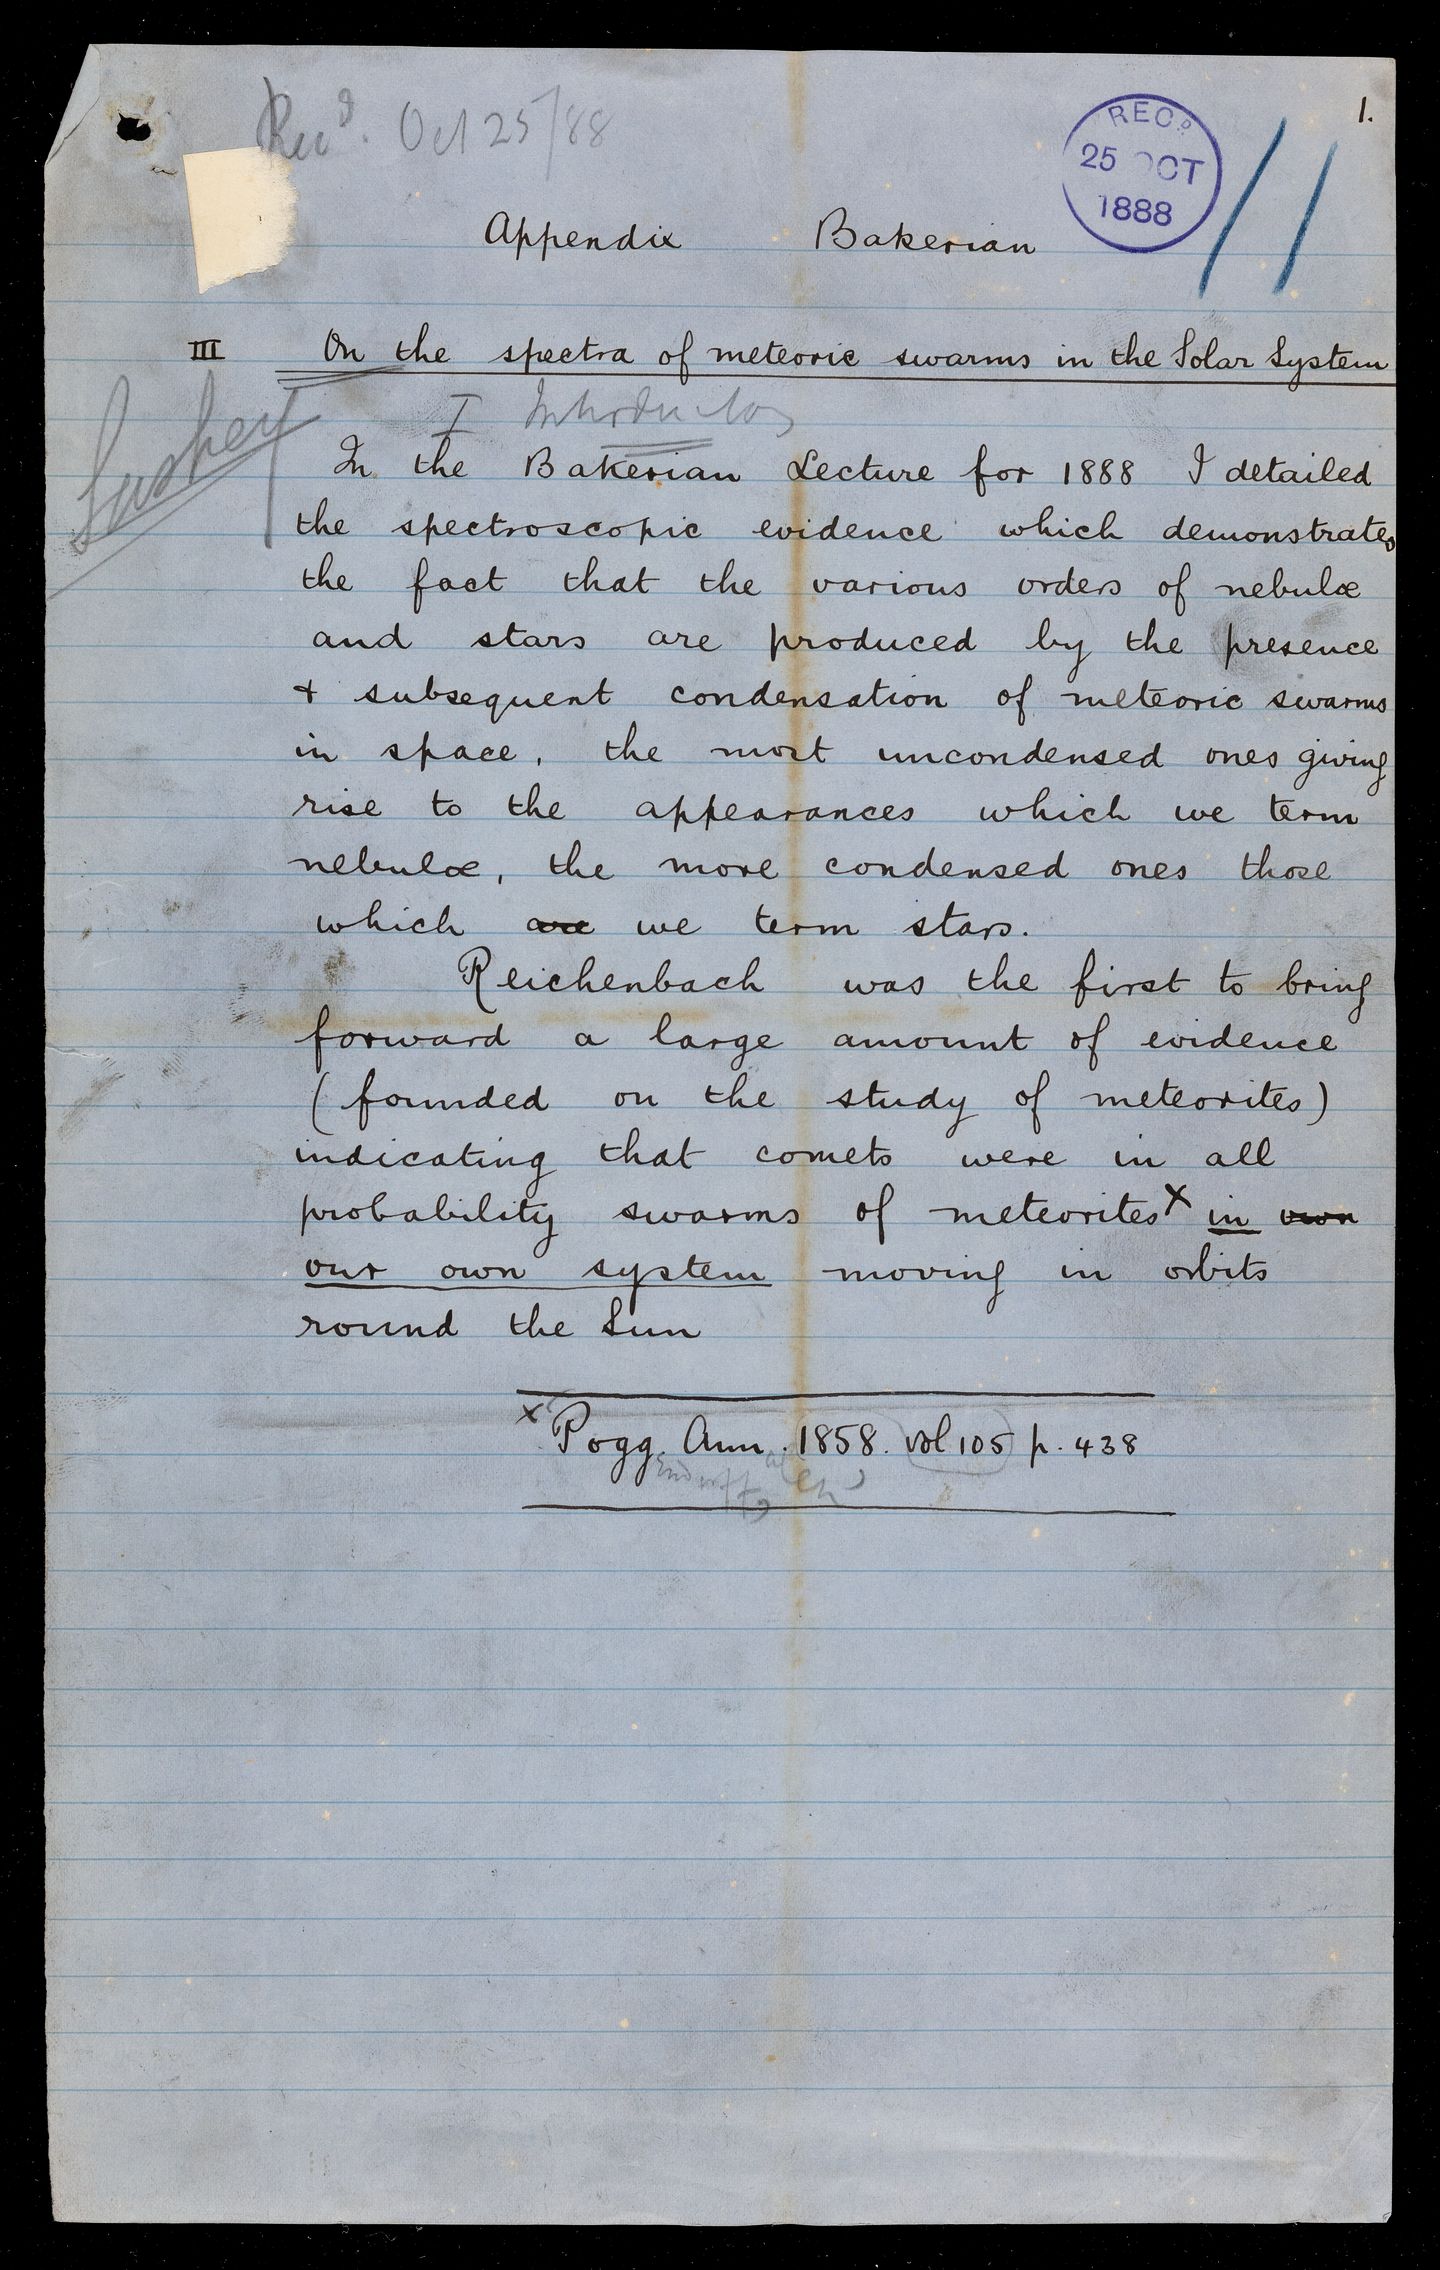 Recd. Oct 25/88
RECD.
25 OCT
1888
1.
Appendix Bakerian
III On the spectra of meteoric swarms in the Solar System
I Introductory
In the Bakerian Lecture for 1888 I detailed
the spectroscopic evidence which demonstrates
the fact that the various orders of nebulæ
and stars are produced by the presence
+ subsequent condensation of meteoric swarms
in space, the most uncondensed ones giving
rise to the appearances which we term
nebulæ, the more condensed ones those
which are we term stars.
Reichenbach was the first to bring
forward a large amount of evidence
(founded on the study of meteorites)
indicating that comets were in all
probability swarms of meteorites x in own
our own system moving in orbits
round the Sun
x Pogg. Ann. 1858. vol 105 p. 438